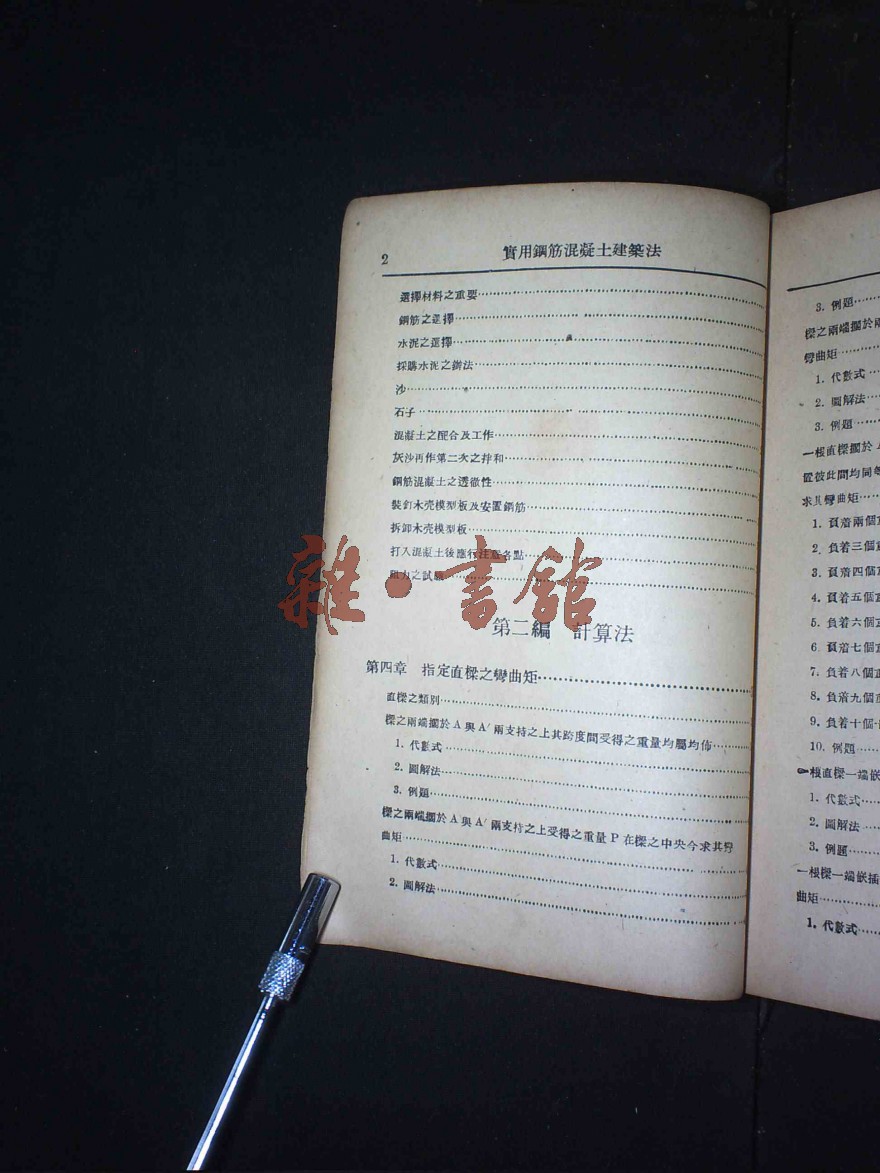 2 實用鋼筋混凝土建築法
選擇材料之重要
鋼筋之選擇
水泥之選擇
採購水泥之辦法
沙
石子
混凝土之配合及工作
灰沙再作第二次之拌和
鋼筋混凝土之透徹性
裝釘木壳模型板及安置鋼筋
拆卸木壳模型板
打入混凝土後應行注意各點
阻力之試驗
雜·書館
第二編 計算法
第四章 指定直樑之彎曲矩
直樑之類別
樑之兩端擱於 A 與 A′ 兩支持之上其跨度間受得之重量均屬均佈
1. 代數式
2. 圖解法
3. 例題
樑之兩端擱於 A 與 A′ 兩支持之上受得之重量 P 在樑之中央今求其彎
曲矩
1. 代數式
2. 圖解法
3. 例題
樑之兩端擱於兩
彎曲矩
1. 代數式
2. 圖解法
3. 例題
一根直樑擱於
置彼此間均同等
求其彎曲矩
1. 負着兩個
2. 負着三個
3. 負着四個
4. 負着五個
5. 負着六個
6. 負着七個
7. 負着八個
8. 負着九個
9. 負着十個
10. 例題
一根直樑一端嵌
1. 代數式
2. 圖解法
3. 例題
一根樑一端嵌插
曲矩
1. 代數式